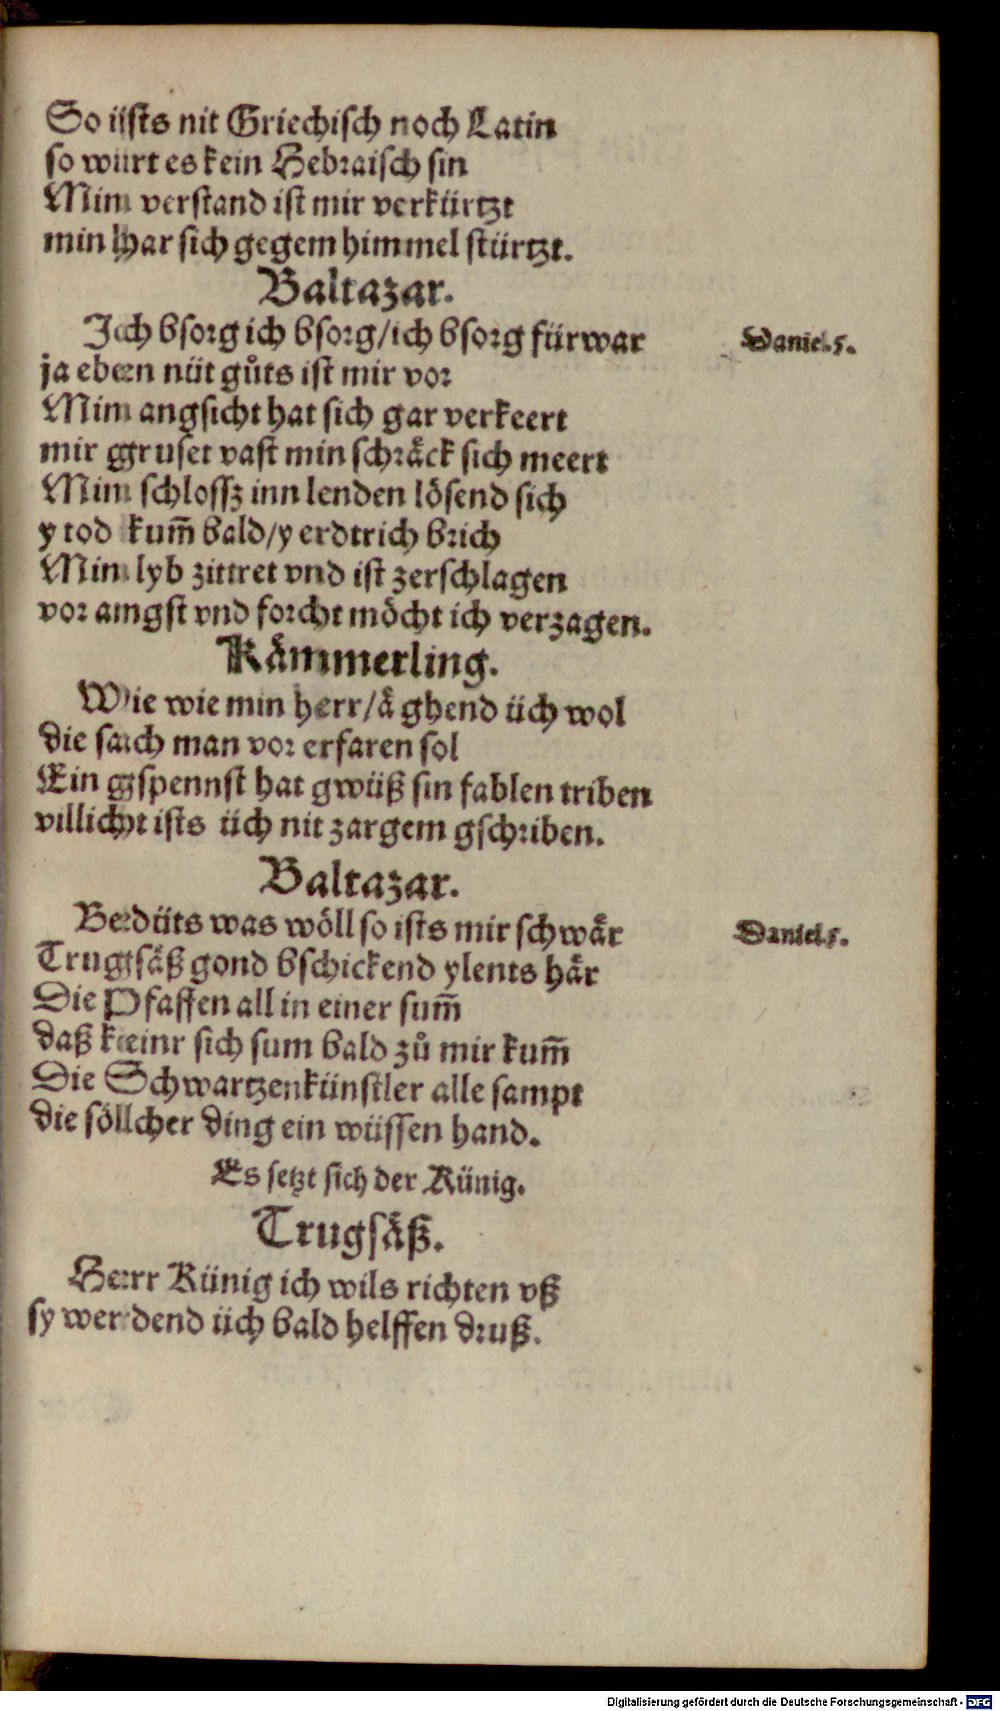 So iſts nit Griechiſch noch Latin
ſo wurt es kein Hebraiſch ſin
Min verſtand iſt mir verkürtzt
min har ſich gegem himmel ſtürtzt.
Baltazar.
Ich bſorg ich bſorg/ich bſorg fürwar
Daniel.5.
ja eben nüt gůts iſt mir vor
Min angſicht hat ſich gar verkeert
mir gruſet vaſt min ſchräck ſich meert
Min ſchloſſz inn lenden löſend ſich
y tod kum̄ bald/y erdtrich brich
Min lyb zittret vnd iſt zerſchlagen
vor angſt vnd forcht möcht ich verzagen.
Kämmerling.
Wie wie min herr/ä ghend üch wol
die ſach man vor erfaren ſol
Ein gſpennſt hat gwüß ſin fablen triben
villicht iſts üch nit zargem gſchriben.
Baltazar.
Bedüts was wöll ſo iſts mir ſchwär
Daniel.5.
Trugſäß gond bſchickend ylents här
Die Pfaffen all in einer ſum̄
daß keinr ſich ſum bald zů mir kum̄
Die Schwartzenkünſtler alle ſampt
die ſöllcher ding ein wüſſen hand.
Es ſetzt ſich der Künig.
Trugſäß.
Herr Künig ich wils richten vß
ſy werdend üch bald helffen druß.
Digitalisierung gefördert durch die Deutsche Forschungsgemeinschaft - DFG